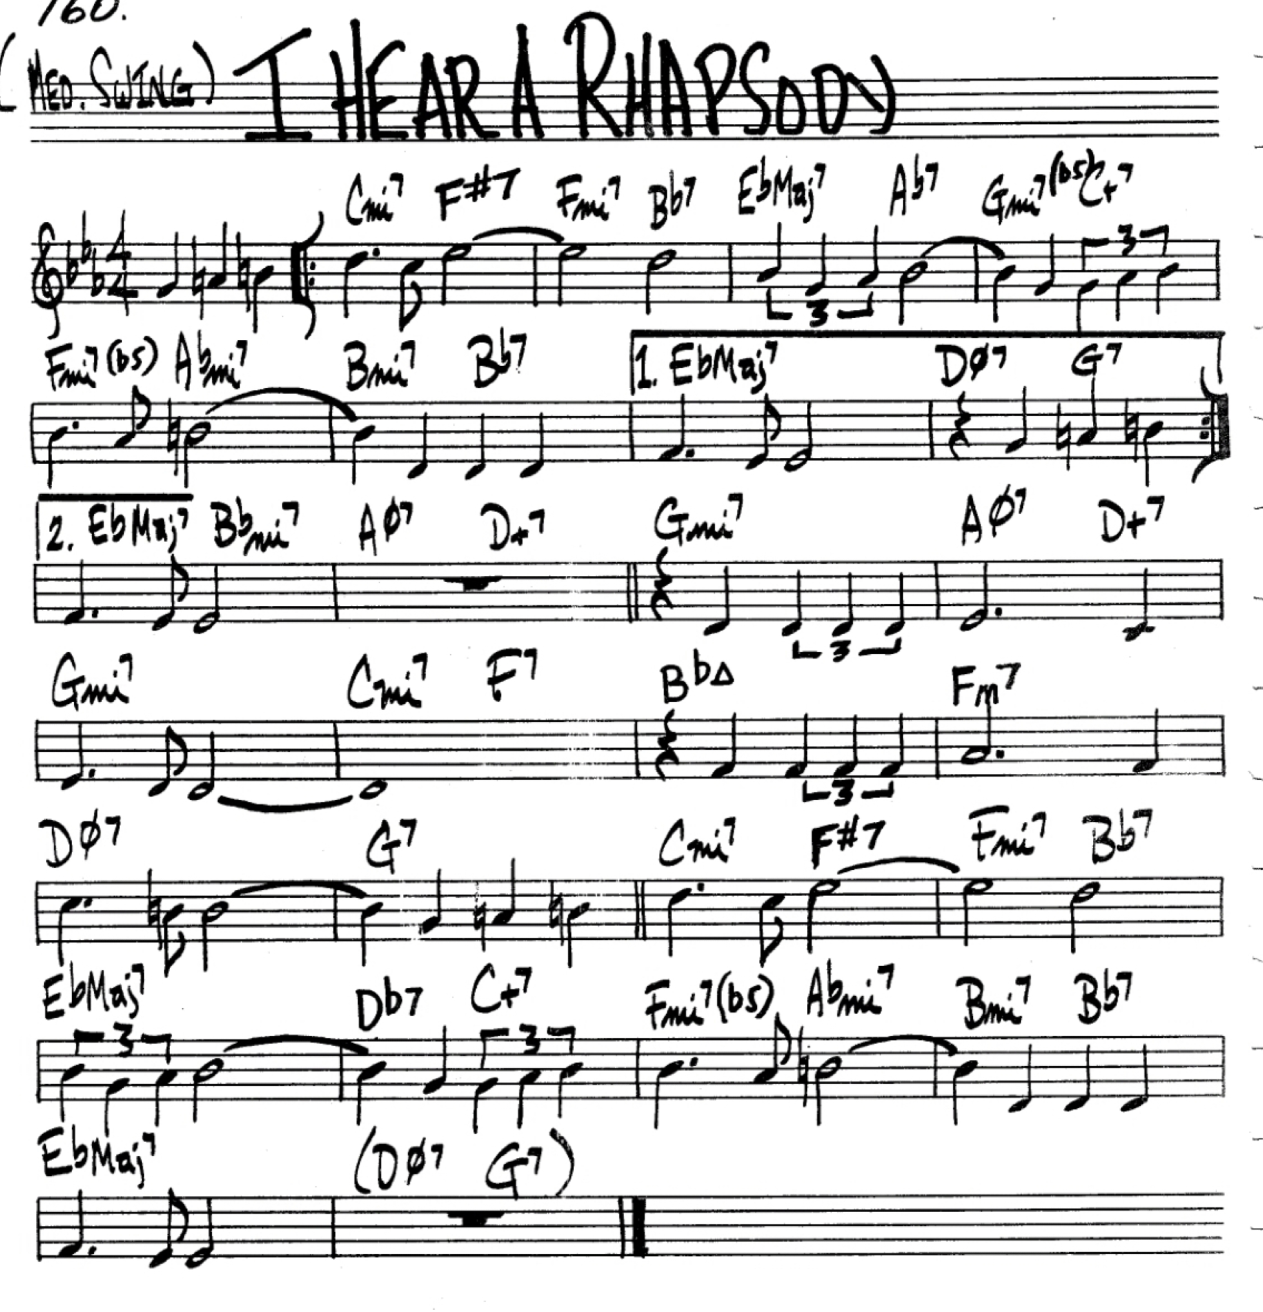 160.
(MED. SWING) I HEAR A RHAPSODY
Cmi7 F#7 Fmi7 Bb7 EbMaj7 Ab7 Gmi7(b5) C+7
4
4
3 3
Fmi7(b5) Abmi7 Bmi7 Bb7 1. EbMaj7 DØ7 G7
2. EbMaj7 Bbmi7 AØ7 D+7 Gmi7 AØ7 D+7
3
Gmi7 Cmi7 F7 BbΔ Fm7
3
DØ7 G7 Cmi7 F#7 Fmi7 Bb7
EbMaj7 Db7 C+7 Fmi7(b5) Abmi7 Bmi7 Bb7
3 3
EbMaj7 (DØ7 G7)